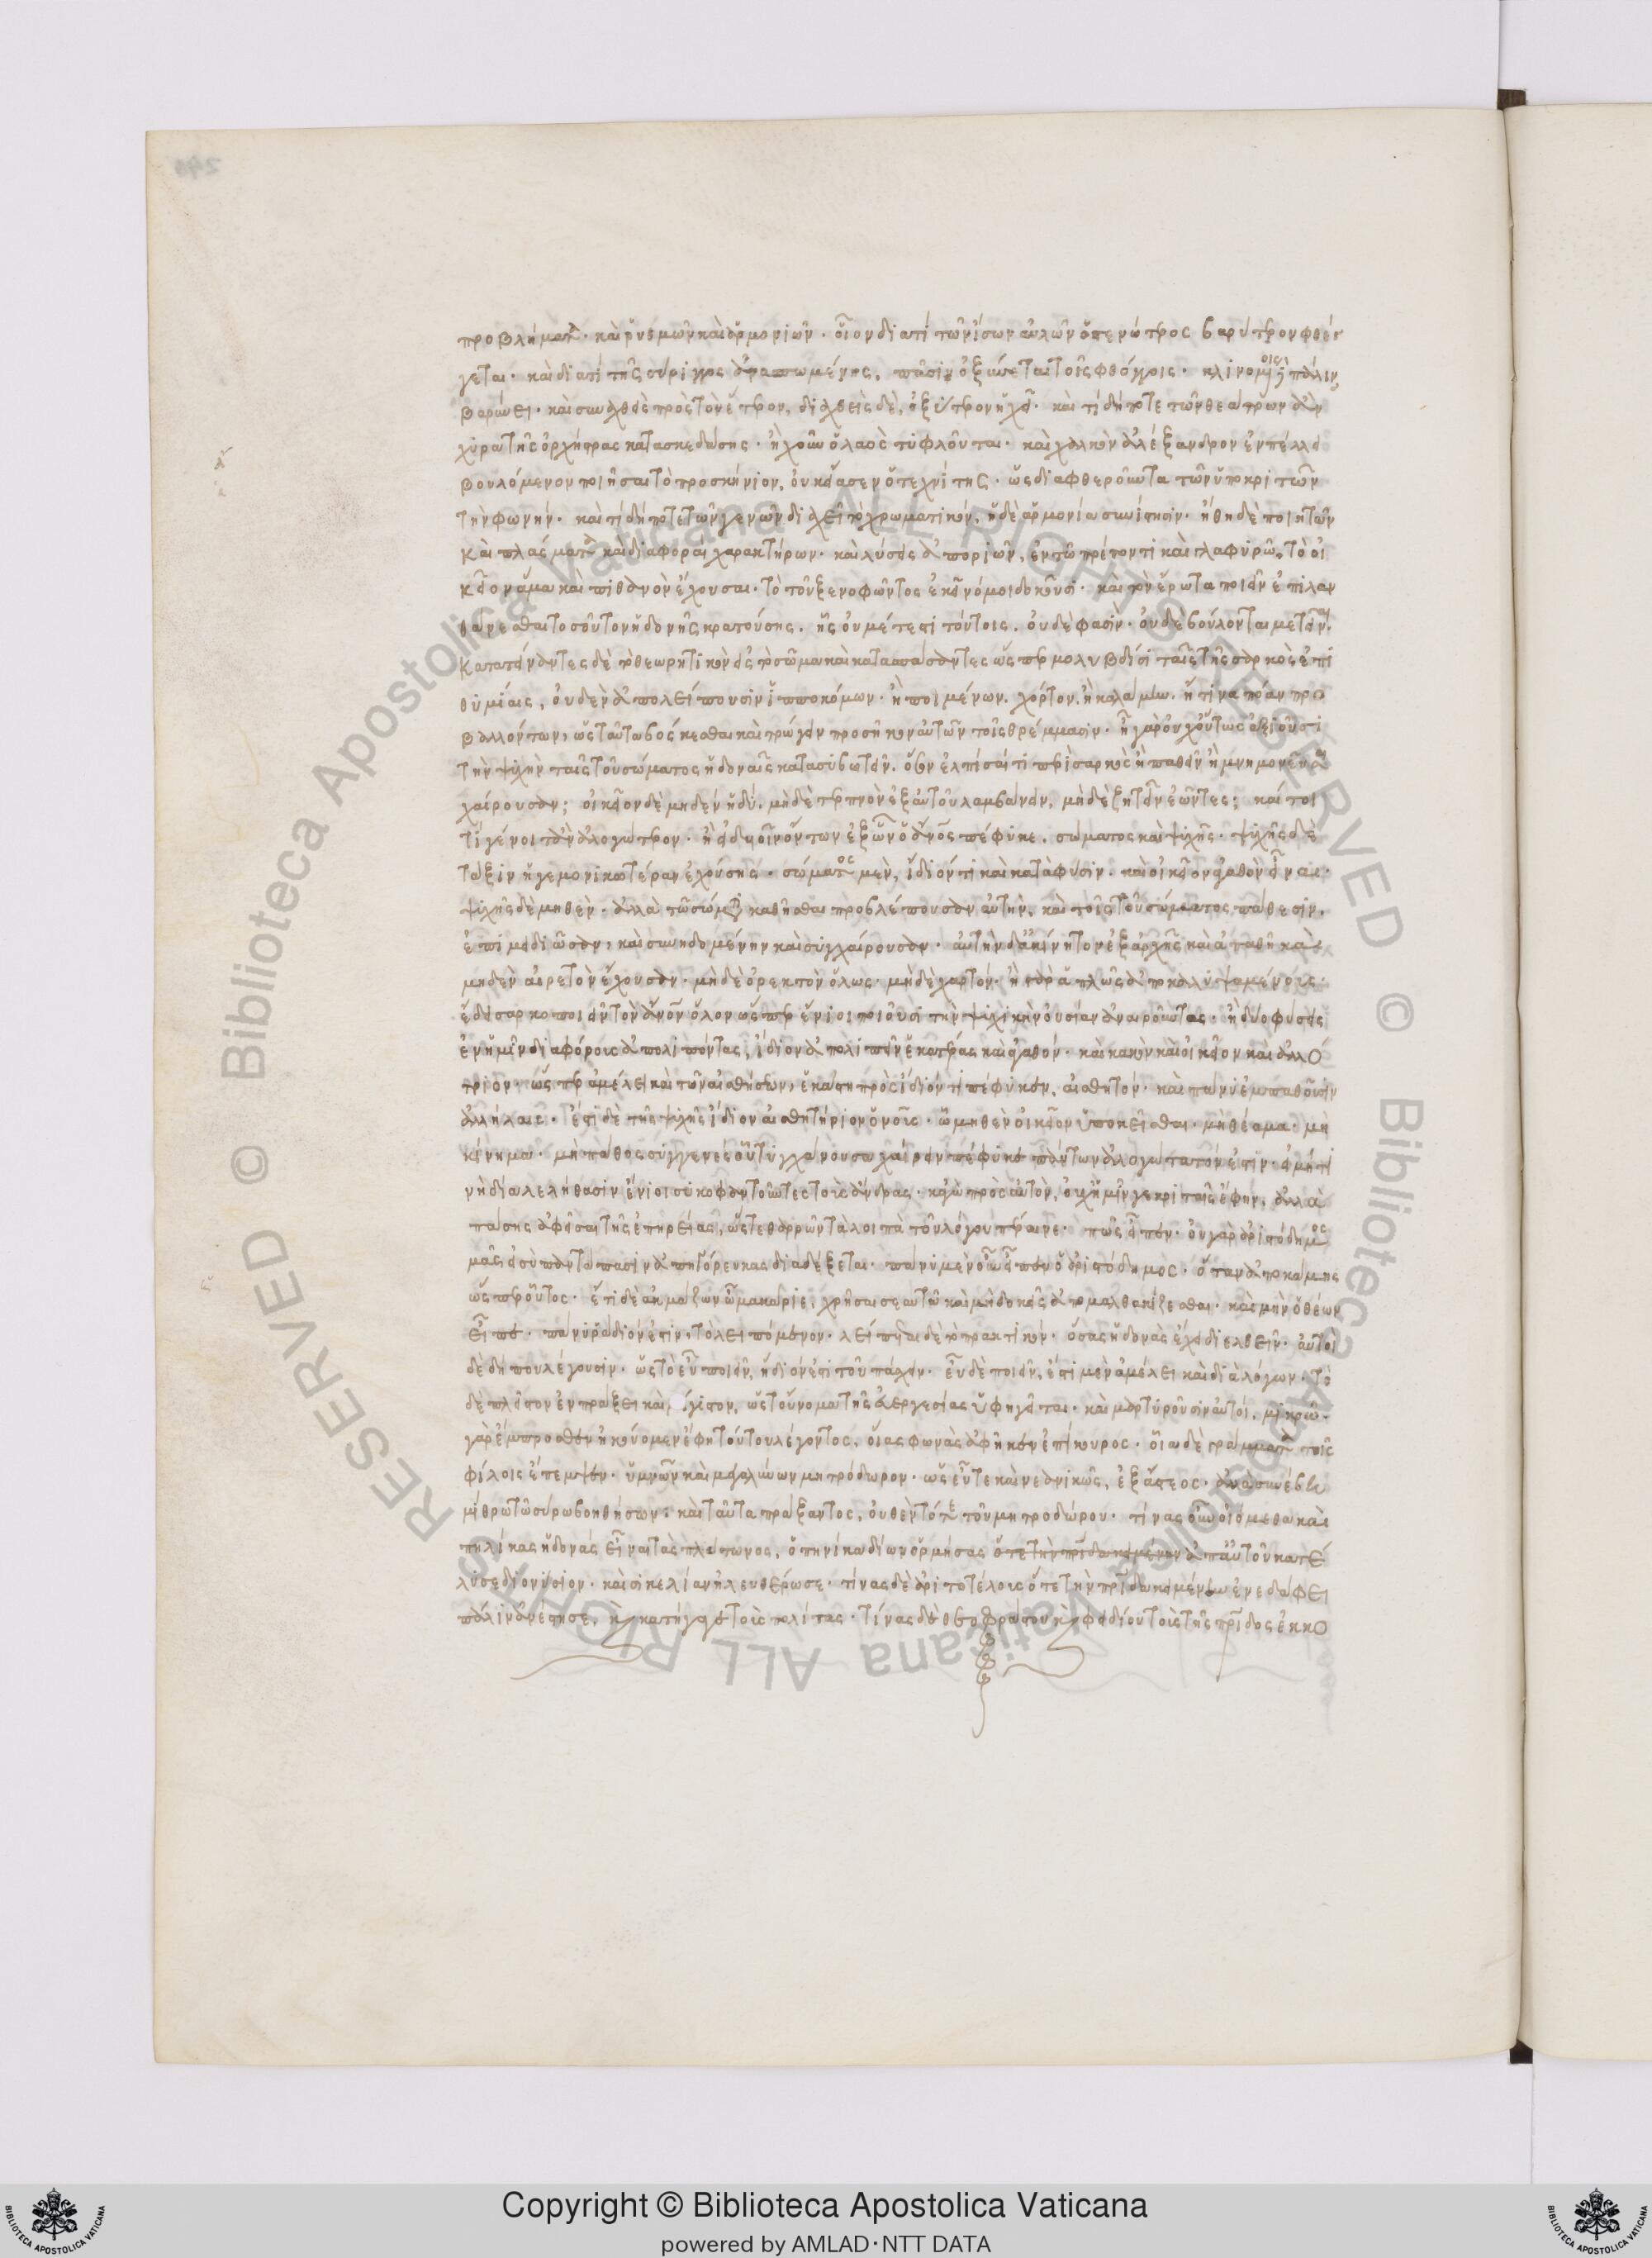 προβλήματα· καὶ ῥυθμῶν καὶ ἁρμονιῶν· οἷον διατί τῶν ἴσων αὐλῶν ὁ στενώτερος βαρύτερον φθέγ
γεται· καὶ διατί τῆς σύριγγος ἀνασπωμένης, πᾶσιν ὀξύνεται τοῖς φθόγγοις· κλινομένης πάλιν
βαρύνει· καὶ συναχθεὶς πρὸς τὸν ἕτερον, διαχθεὶς δὲ, ὀξύτερον ἠχεῖ· καὶ τί δήποτε τῶν θεάτρων ἂν
χυρα τῆς ὀρχήστρας κατασκεδάσης· ἢ χοῦν ὁ λαὸς τυφλοῦται· καὶ χαλκὸν ἀλέξανδρον ἐν πέλλῃ
βουλόμενον ποιῆσαι τὸ προσκήνιον, οὐκ εἴασεν ὁ τεχνίτης· ὡς διαφθεροῦντα τῶν ὑποκριτῶν
τὴν φωνήν· καὶ τί δήποτε τῶν γενῶν διαχεῖ τὸ χρωματικόν, ἡ δὲ ἁρμονία συνίστησιν· ἤθη δὲ ποιητῶν
καὶ πλάσματα καὶ διαφοραὶ χαρακτήρων· καὶ λύσεις ἀποριῶν, ἐν τῷ πρέποντι καὶ γλαφυρῷ, τὸ οἰ
κεῖον ἅμα καὶ πιθανὸν ἔχουσαι· τὸ τοῦ ξενοφῶντος ἐκεῖνό μοι δοκοῦσι· καὶ τὸν ἔρωτα ποιεῖν ἐπιλαν
θάνεσθαι τοσοῦτον ἡδονῆς κρατούσης. ἧς οὐ μέτεστι τούτοις. οὐδέ φασιν· οὐδὲ βούλονται μετεῖναι.
κατατείνοντες δὲ τὸ θεωρητικὸν εἰς τὸ σῶμα καὶ κατασπάσαντες ὥσπερ μολυβδίσι ταῖς τῆς σαρκὸς ἐπι
θυμίαις, οὐδὲν ἀπολείπουσιν ἱπποκόμων· ἢ ποιμένων. χόρτον. ἢ καλάμην. ἤ τινα πόαν προ
βαλλόντων, ὡς ταῦτα βόσκεσθαι καὶ τρώγειν προσῆκον αὐτῶν τοῖς θρέμμασιν· ἢ γὰρ οὐχ οὕτως ἀξιοῦσι
τὴν ψυχὴν ταῖς τοῦ σώματος ἡδοναῖς κατασυβωτεῖν. ὅσον ἐλπίσαί τι περὶ σαρκὸς ἢ παθεῖν ἢ μνημονεῦσαι
χαίρουσαν; οἰκεῖον δὲ μηδὲν ἡδὺ. μὴ δὲ τερπνὸν ἐξ αὐτοῦ λαμβάνειν, μὴ δὲ ζητεῖν ἐῶντες; καί τοι
τί γένοιτ' ἂν ἀλογώτερον· ἢ δυοῖν ὄντων ἐξ ὧν ὁ ἄνθρωπος πέφυκε. σώματος καὶ ψυχῆς· ψυχῆς δὲ
τάξιν ἡγεμονικωτέραν ἐχούσης· σώματος μὲν, ἴδιόν τι καὶ κατὰ φύσιν. καὶ οἰκεῖον ἀγαθὸν εἶναι·
ψυχῆς δὲ μηθὲν· ἀλλὰ τῷ σώματι καθῆσθαι προσβλέπουσαν αὐτὴν, καὶ τοῖς τοῦ σώματος πάθεσιν.
ἐπιμειδιῶσαν, καὶ συνηδομένην καὶ συγχαίρουσαν· αὐτὴν δ' ἀκίνητον ἐξ ἀρχῆς καὶ ἀπαθῆ καὶ
μηδὲν αἱρετὸν ἔχουσαν· μὴ δὲ ὀρεκτὸν ὅλως· μὴ δὲ χαρτόν· ἢ γὰρ ἁπλῶς ἀποκαλυψαμένους
ἔδει σαρκοποιεῖν τὸν ἄνθρωπον ὅλον ὥσπερ ἔνιοι ποιοῦσι τὴν ψυχικὴν οὐσίαν ἀναιροῦντας· ἢ δύο φύσεις
ἐν ἡμῖν διαφόρους ἀπολιπόντας, ἴδιον ἀπολιπεῖν ἑκατέρας καὶ ἀγαθόν· καὶ κακὸν καὶ οἰκεῖον καὶ ἀλλό
τριον· ὥσπερ ἀμέλει καὶ τῶν αἰσθήσεων, ἑκάστη πρὸς ἴδιόν τι πέφυκεν, αἰσθητόν· καὶ πάνυ συμπαθοῦσιν
ἀλλήλαις· ἔστι δὲ τῆς ψυχῆς ἴδιον αἰσθητήριον ὁ νοῦς· ᾧ μηθὲν οἰκεῖον ὑποκεῖσθαι· μὴ θέαμα· μὴ
κίνημα· μὴ πάθος συγγενὲς οὗ τυγχάνουσα χαίρειν πέφυκε πάντων ἀλογώτατόν ἐστιν· εἰ μή τι
νὴ δία λελήθασιν ἔνιοι συκοφαντοῦντες τοὺς ἄνδρας· κἀγὼ πρὸς αὐτὸν, οὐχ ἡμῖν γε κριταῖς ἔφην, ἀλλὰ
πάσης ἀφεῖσαι τῆς ἐπηρείας, ὥστε θαρρῶν τὰ λοιπὰ τοῦ λόγου πέραινε· πῶς εἶπον· οὐ γὰρ ἀριστόδημος
μᾶς εἰ σὺ παντάπασιν ἀπηγόρευκας διαδέξεται· πάνυ μὲν οὖν εἶπεν ὁ ἀριστόδημος· ὅταν ἀποκάμῃς
ὥσπερ οὗτος· ἔτι δὲ ἀκμάζων ὦ μακάριε, χρῆσαι σεαυτῷ καὶ μὴ δοκῇς ἀπομαλθακίζεσθαι· καὶ μὴν ὁ θέων
εἶπε· πάνυ ῥάδιόν ἐστιν, τὸ λειπόμενον· λείπεται δὲ τὸ πρακτικὸν· ὅσας ἡδονὰς ἔχει διελθεῖν· αὐτοὶ
δὲ δήπου λέγουσιν· ὡς τὸ εὖ ποιεῖν, ἥδιόν ἐστι τοῦ πάσχειν· εὖ δὲ ποιεῖν, ἔστι μὲν ἀμέλει καὶ διὰ λόγων· τὸ
δὲ πλεῖστον ἐν πράξει καὶ μέγιστον, ὡς τοὔνομα τῆς εὐεργεσίας ὑφηγεῖται· καὶ μαρτυροῦσιν αὐτοί. μικρῷ·
γὰρ ἔμπροσθεν ἠκούομεν ἔφη τούτου λέγοντος, οἵας φωνὰς ἀφῆκεν ἐπίκουρος· οἷα δὲ γράμματα τοῖς
φίλοις ἔπεμψεν· ὑμνῶν καὶ μεγαλύνων μητρόδωρον· ὡς εὖ τε καὶ νεανικῶς, ἐξ ἄστεος· ἅλαδε συνέβη
μίθρω τῷ σύρω βοηθήσων, καὶ ταῦτα πράξαντος, οὐθὲν τότε τοῦ μητροδώρου· τίνας οὖν οἰόμεθα καὶ
πηλίκας ἡδονάς εἶναι τὰς πλάτωνος, ὁπηνίκα δίων ὁρμήσας ὅτε τὴν πατρίδα κειμένην ἀπ' αὐτοῦ κατέ
λυσε διονύσιον· καὶ σικελίαν ἠλευθέρωσε· τίνας δὲ ἀριστοτέλους ὅτε τὴν πατρίδα κειμένην ἐν ἐδάφει
πάλιν ἀνέστησε, καὶ κατήγαγε τοὺς πολίτας· τίνας δὲ θεοφράστου καὶ φειδίου τοὺς τῆς πατρίδος ἐκκο